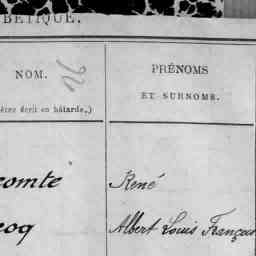 BÉTIQUE.
NOM.
26
PRÉNOMS
ET SURNOMS.
être écrit en bâtarde.)
comte
René
coq
Albert Louis François